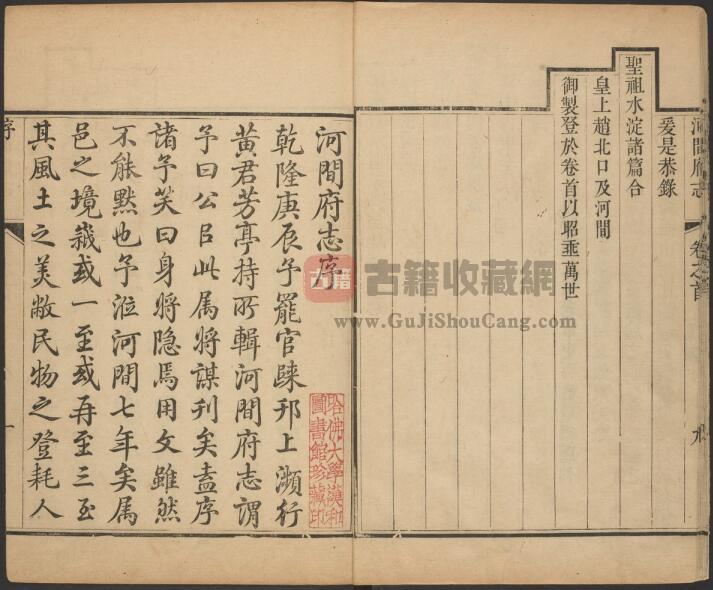 河間府志
卷之首
九
爰是恭錄
聖祖水淀諸篇合
皇上趙北口及河間
御製登於卷首以昭垂萬世
河間府志序
乾隆庚辰予罷官歸邗上瀕行
黃君芳亭持所輯河間府志謂
予曰公呂此屬將謀刋矣盍序
諸予笑曰身將隐焉用文雖然
不能默也予涖河間七年矣屬
邑之境嵗或一至或再至三至
其風土之美敝民物之登耗人
序
一
哈佛大學漢和
圖書館珍藏印
古籍
古籍收藏網
www.GuJiShouCang.com